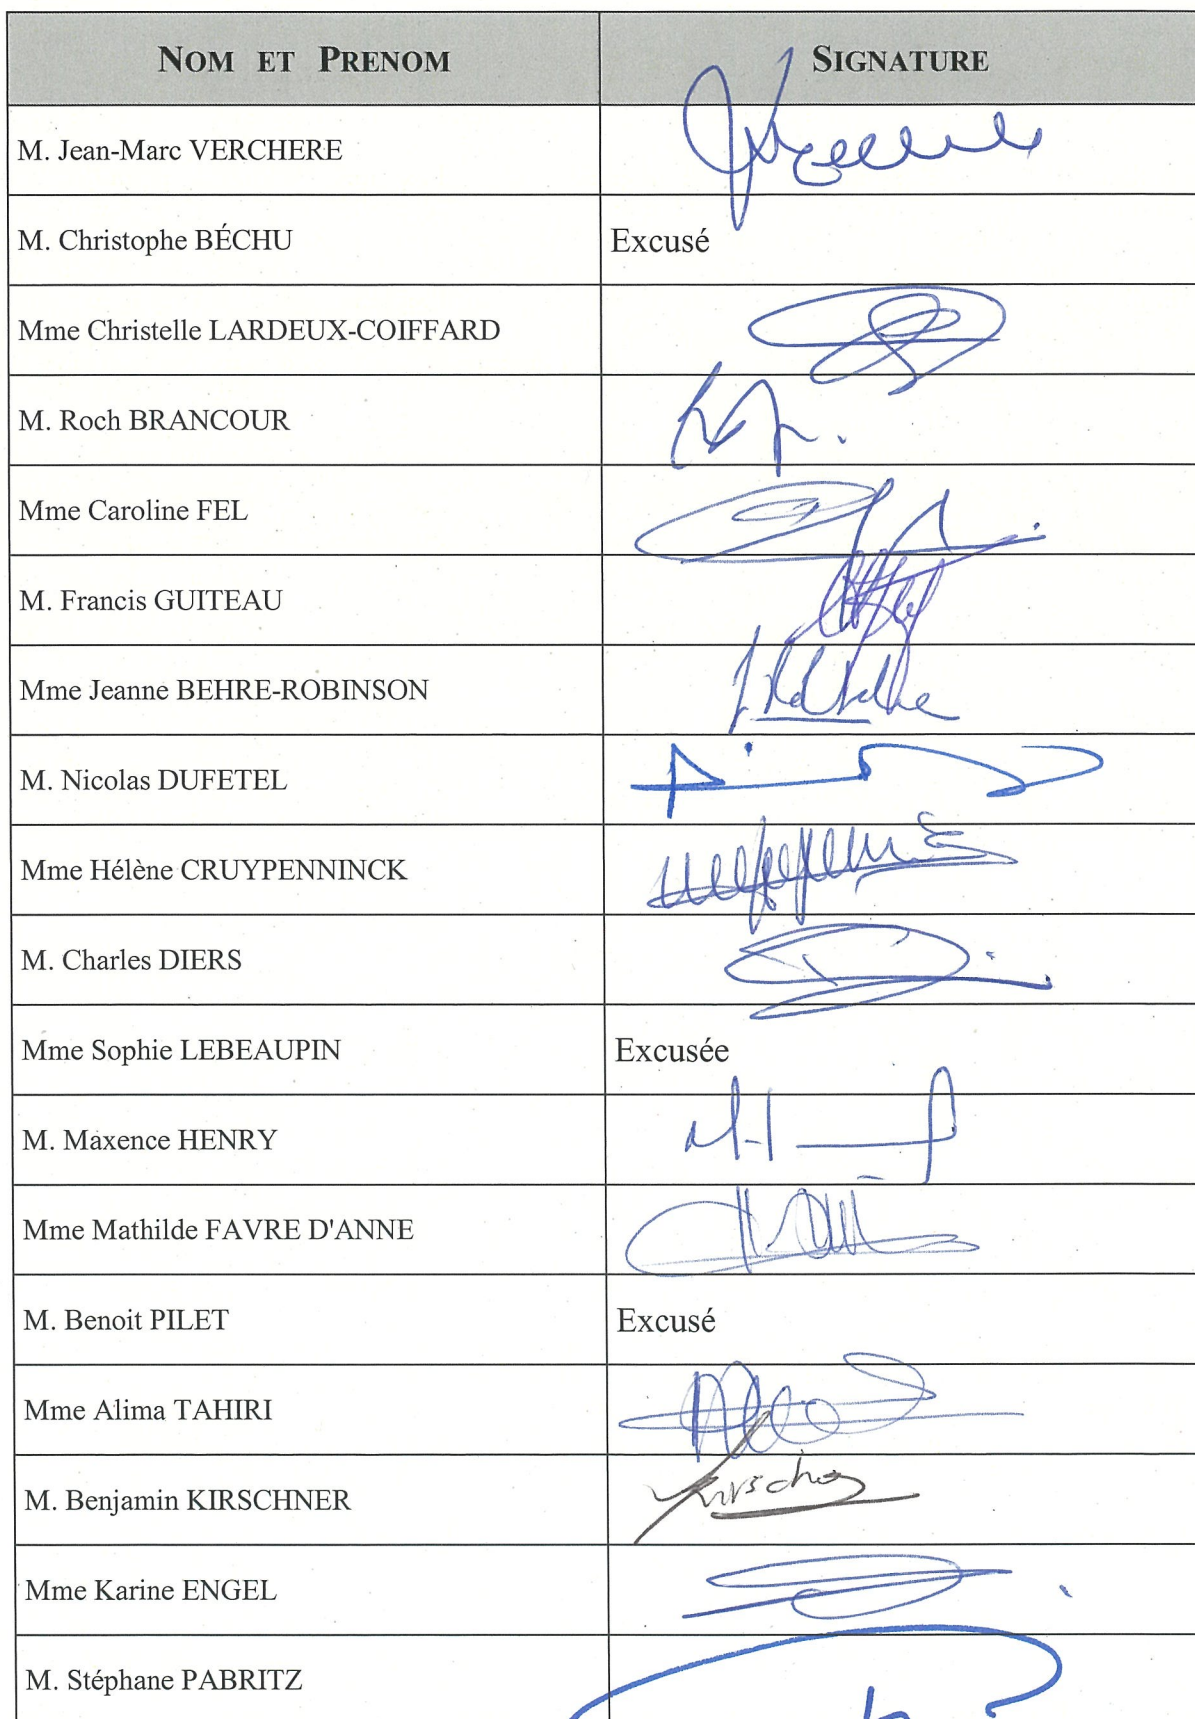 NOM ET PRENOM SIGNATURE
M. Jean-Marc VERCHERE
M. Christophe BÉCHU Excusé
Mme Christelle LARDEUX-COIFFARD
M. Roch BRANCOUR
Mme Caroline FEL
M. Francis GUITEAU
Mme Jeanne BEHRE-ROBINSON
M. Nicolas DUFETEL
Mme Hélène CRUYPENNINCK
M. Charles DIERS
Mme Sophie LEBEAUPIN Excusée
M. Maxence HENRY
Mme Mathilde FAVRE D'ANNE
M. Benoit PILET Excusé
Mme Alima TAHIRI
M. Benjamin KIRSCHNER
Mme Karine ENGEL
M. Stéphane PABRITZ